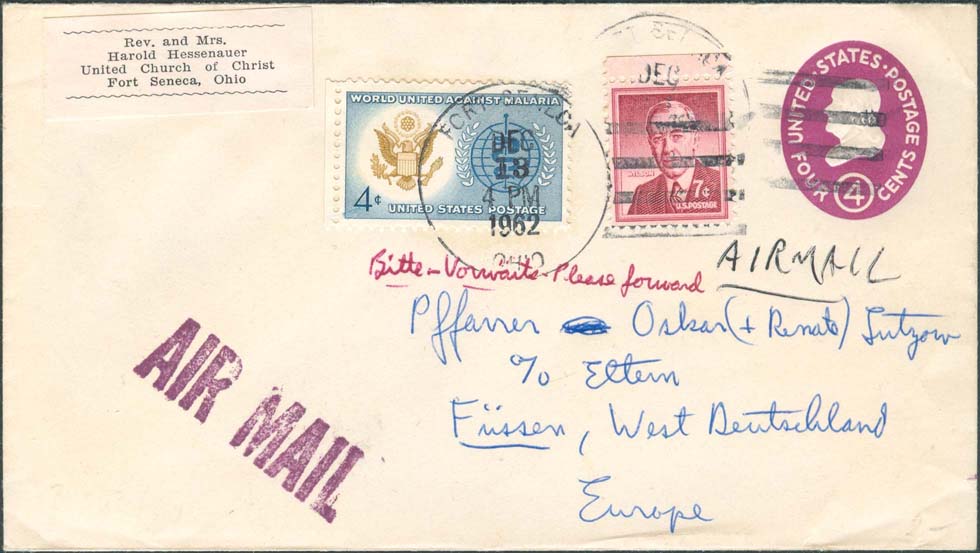 Rev. and Mrs.
Harold Hessenauer
United Church of Christ
Fort Seneca, Ohio
WORLD UNITED AGAINST MALARIA
4¢
UNITED STATES POSTAGE
FORT SENECA
DEC
13
4 PM
1962
OHIO
DEC
WILSON
7¢
U.S. POSTAGE
UNITED STATES · POSTAGE
FOUR 4 CENTS
AIRMAIL
Bitte - Vorwaits - Please forward
Pffarrer Oskar (+ Renate) Lutzow
c/o Eltern
Füssen, West Deutschland
Europe
AIR MAIL